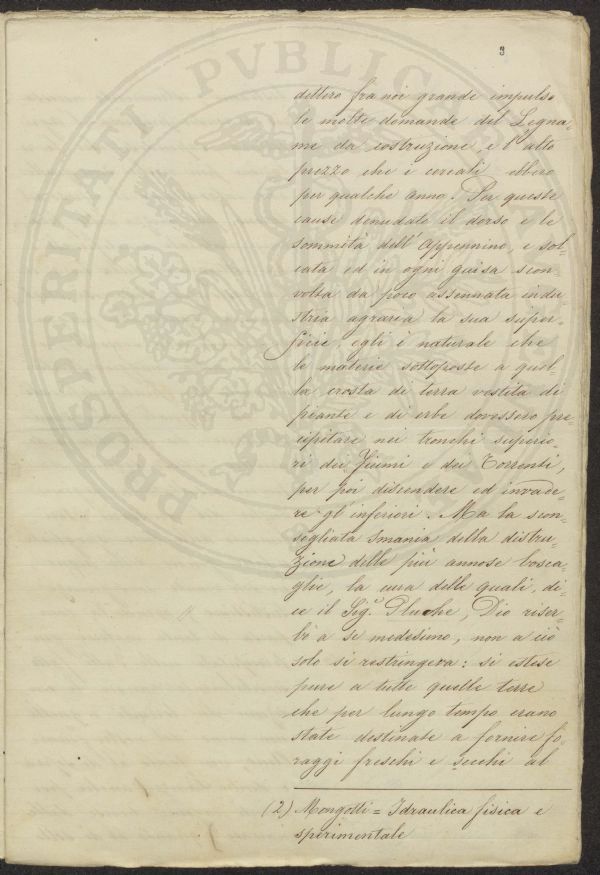 3
PROSPERITATI PVBLICAE
dettero fra noi grande impulso
le molte domande del Legna-
me da costruzione, e l'alto
prezzo che i cereali ebbero
per qualche anno. Per queste
cause denudate il dorso e le
sommità dell'Appennino, e sol-
cata ed in ogni guisa scon-
volta da poco assennata indu-
stria agraria la sua super-
ficie, egli è naturale che
le materie sottoposte a quel-
la crosta di terra vestita di
piante e di erbe dovessero pre-
cipitare nei tronchi superio-
ri dei Fiumi e dei Torrenti,
per poi discendere ed invade-
re gl'inferiori. Ma la scon-
sigliata smania della distru-
zione delle più annose bosca-
glie, la cura delle quali, di-
ce il Sig.r Pluche, Dio riser-
bò a se medesimo, non a ciò
solo si restringeva: si estese
pure a tutte quelle terre
che per lungo tempo erano
state destinate a fornire fo-
raggi freschi e secchi al
(2) Mengotti = Idraulica fisica e
sperimentale